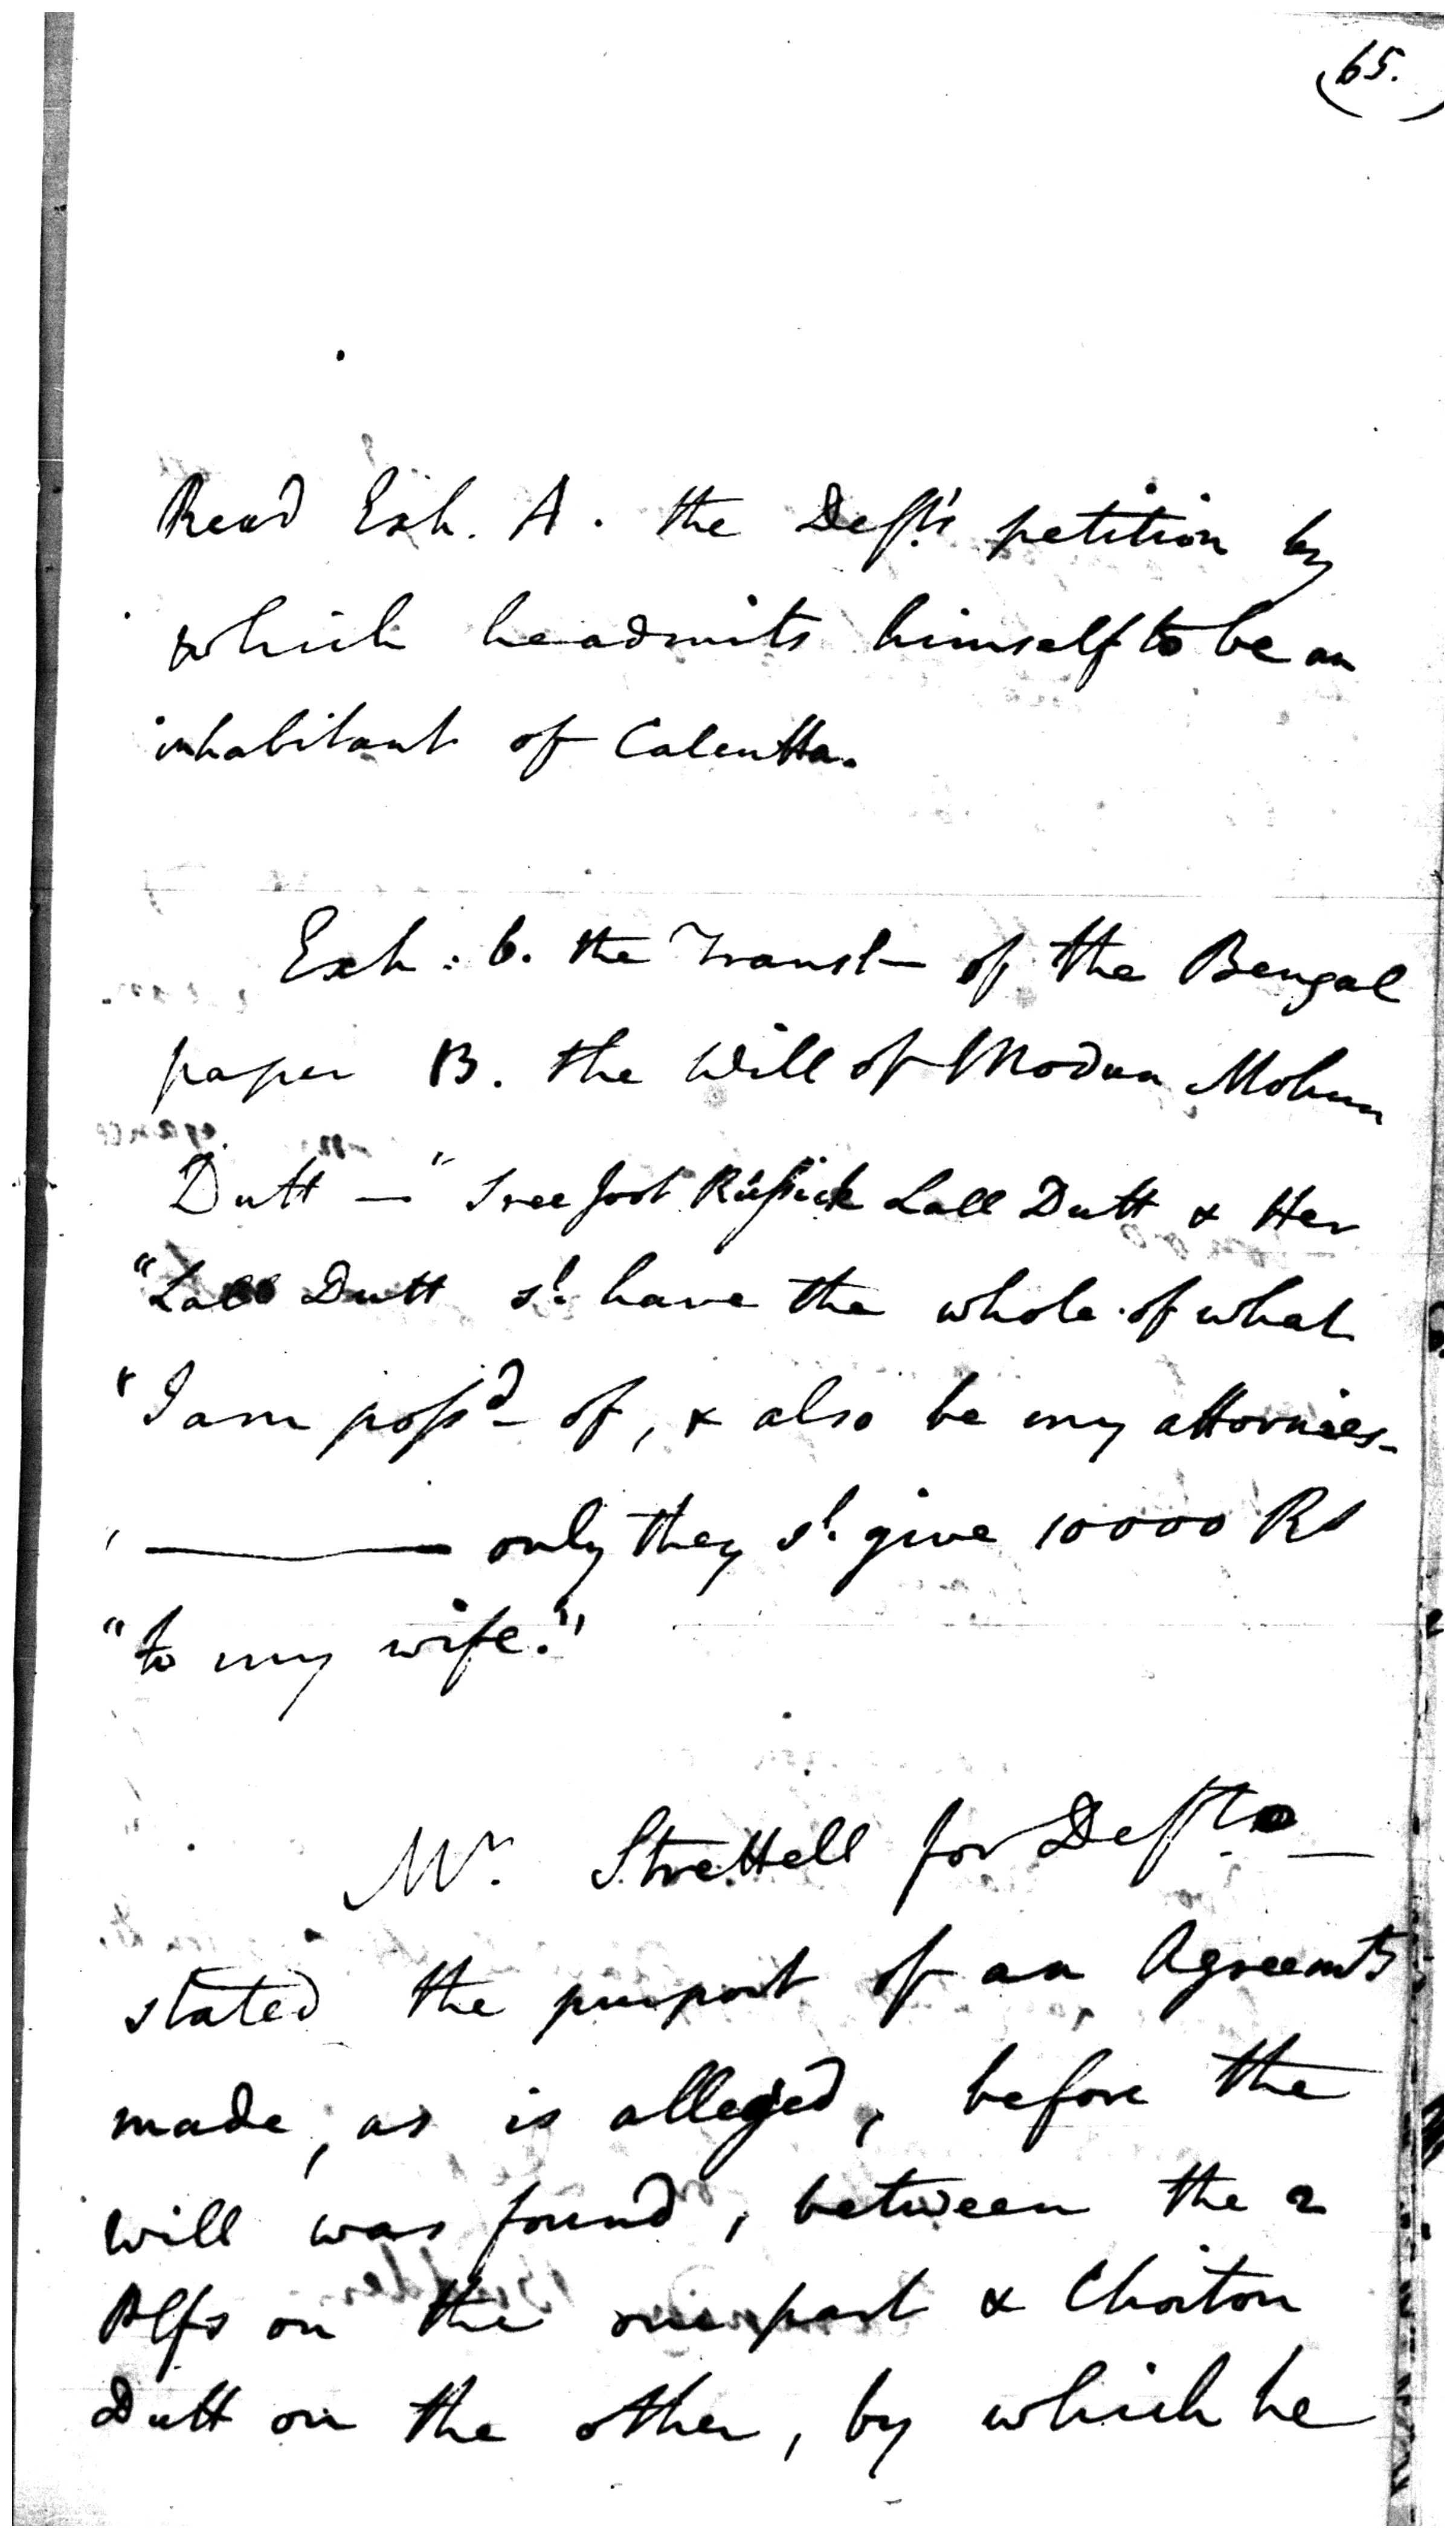 (65.)
Read Exh. A. the Deft's petition by
which he admits himself to be an
inhabitant of Calcutta.
Exh: b. the Transl— of the Bengal
paper B. the Will of Modun Mohun
Dutt — "Sree Joot Russick Lall Dutt & Her
"Lall Dutt sd. have the whole of what
"I am poss'd of, & also be my attornies—
" ——— only they sd. give 10000 Rs
"to my wife."
Mr. Strettell for Deft —
stated the purport of an Agreemt
made, as is alleged, before the
will was found, between the 2
Plfs on the one part & Choiton
Dutt on the other, by which he